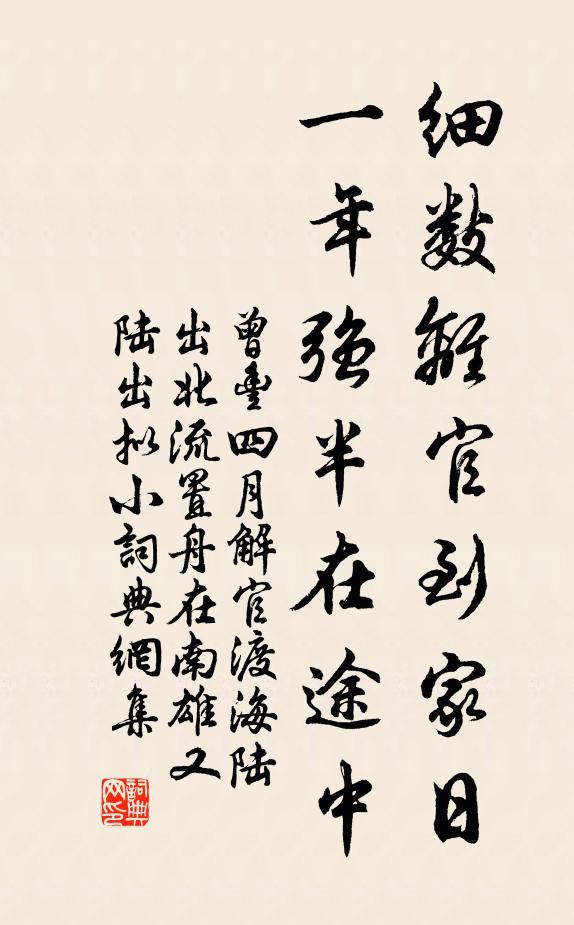 细数離官到家日
一年強半在途中
曾豊四月解官渡海陆
出北流置舟在南雄又
陆出拟小詞典網集
詞典网印